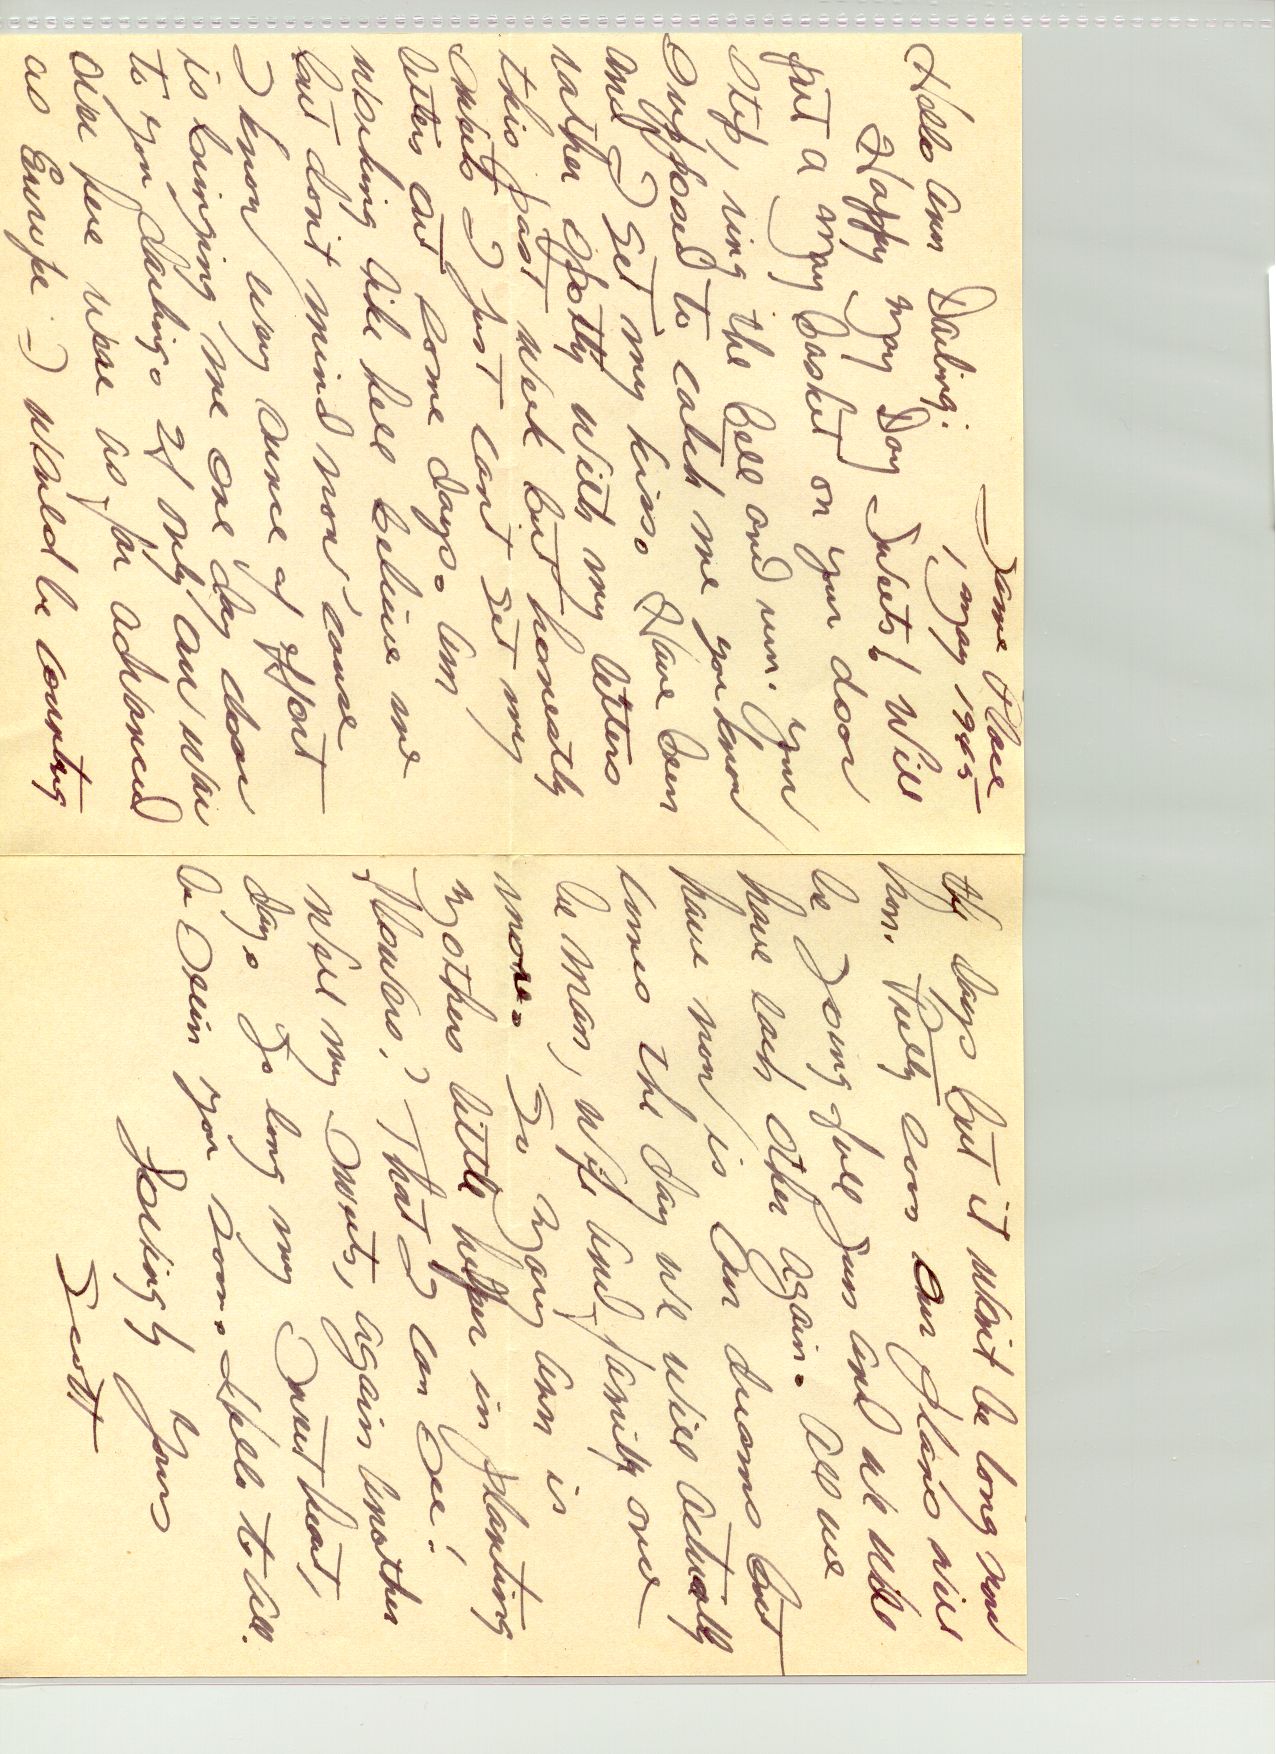 Same Place
1 May 1945
Hello Ann Darling:
Happy May Day Sweets! Will
put a May Basket on your door
step, ring the Bell and run. Your
supposed to catch me you know
and I get my kiss. Have been
rather spotty with my letters
this past week but honestly
Sweets I just cant get my
letters out some days. Am
working like hell believe me
but don't mind now cause
I know every ounce of effort
is bringing me one day closer
to you darling. If only our war
over here were as far advanced
as Europe I would be counting
the days but it won't be long now
hon. Pretty soon our plans will
be going full gun and we will
have each other again. All we
have now is our dreams but
comes the day we will actually
be man, wife and family once
more. So Mary Ann is
Mothers little helper in planting
flowers? That I can see!
Well my Sweets, again another
day. So long my Sweetheart,
be seein you soon. Hello to all.
Lovingly Yours
Scott